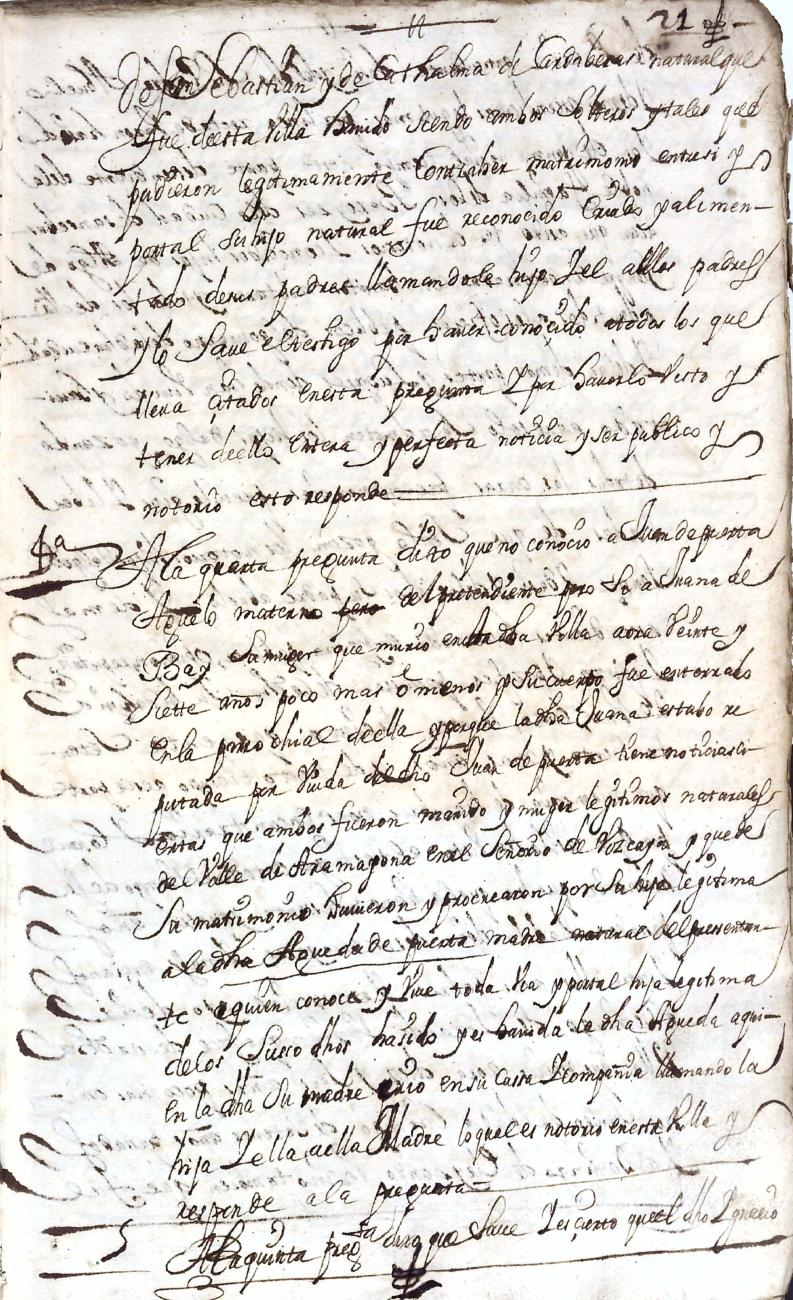 21
de San Sebastian y de Cathalina de Cardaberas natural que
fue de esta Villa havido siendo ambos Solteros y tales que
pudieron legitimamente Contraher matrimonio entre si y
por tal su hijo natural fue reconocido Criado y alimen-
tado de sus padres llamandole hijo Y el a ellos padres
y lo Save el testigo por haver conoçido a todos los que
lleva çitados en esta pregunta Y por haverlo Visto y
tener de ello Entera y perfecta noticia y ser publico y
notorio esto responde
4a
A la quarta pregunta dijo que no conocio a Juan de puerta
Aguelo materno pero del pretendiente pero Si a Juana de
Bay Su muger que murio en esta dha Villa aora Veinte y
Siette años poco mas o menos y su cuerpo fue enterrado
En la parrochial de ella y porque la dha Juana estubo re
putada por Viuda del dho Juan de puerta tiene noticias ci-
ertas que ambos fueron marido y muger legitimos naturales
del Valle de Aramayona en el Señorio de Vizcaya y que de
Su matrimonio huvieron y procrearon por Su hija legitima
a la dha Agueda de puerta madre natural del presentan-
te a quien conoce y Vive toda Via y por tal hija legitima
de los Susso dhos ha sido y es havida la dha Agueda a qui-
en la dha Su madre crio en su Cassa Y compania llamando la
hija Y ella a ella Madre lo qual es notorio en esta Villa y
responde a la pregunta
5
A la quinta pregta dixo que Save Y es cierto que el dho Ygnacio